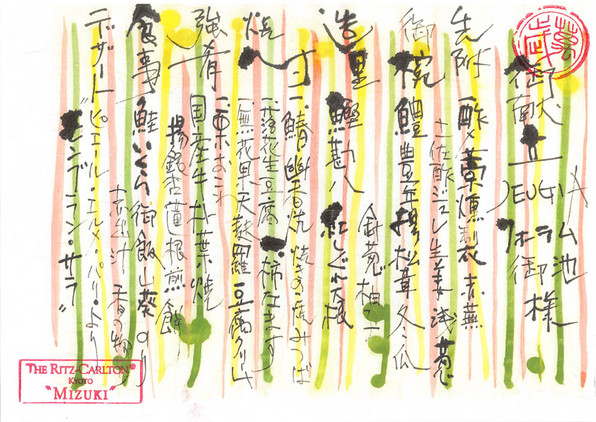 御献立 JEUGIA フォーラム御池様
先附 酢〆 藁燻製 赤蕪
土佐酢ジュレ 生姜 浅葱
御椀 鱧豊年揚 松茸 冬瓜
針葱 柚子
造里 鰹 鯛 勘八 紅しぐれ大根
焼八寸 一、鯖幽香焼 焼きのこ 焼みつば
一、落花生豆腐 一、柿なます
一、無花果天麩羅 豆腐クリーム
一、栗おこわ
強肴 国産牛朴葉焼
揚銀杏 蓮根煎餅
食事 鮭いくら御飯 山葵 のり
赤出汁 香の物
デザート "ピエール・エルメ・パリ"より
"モンブラン・サラ"
THE RITZ-CARLTON®
KYOTO
"MIZUKI"